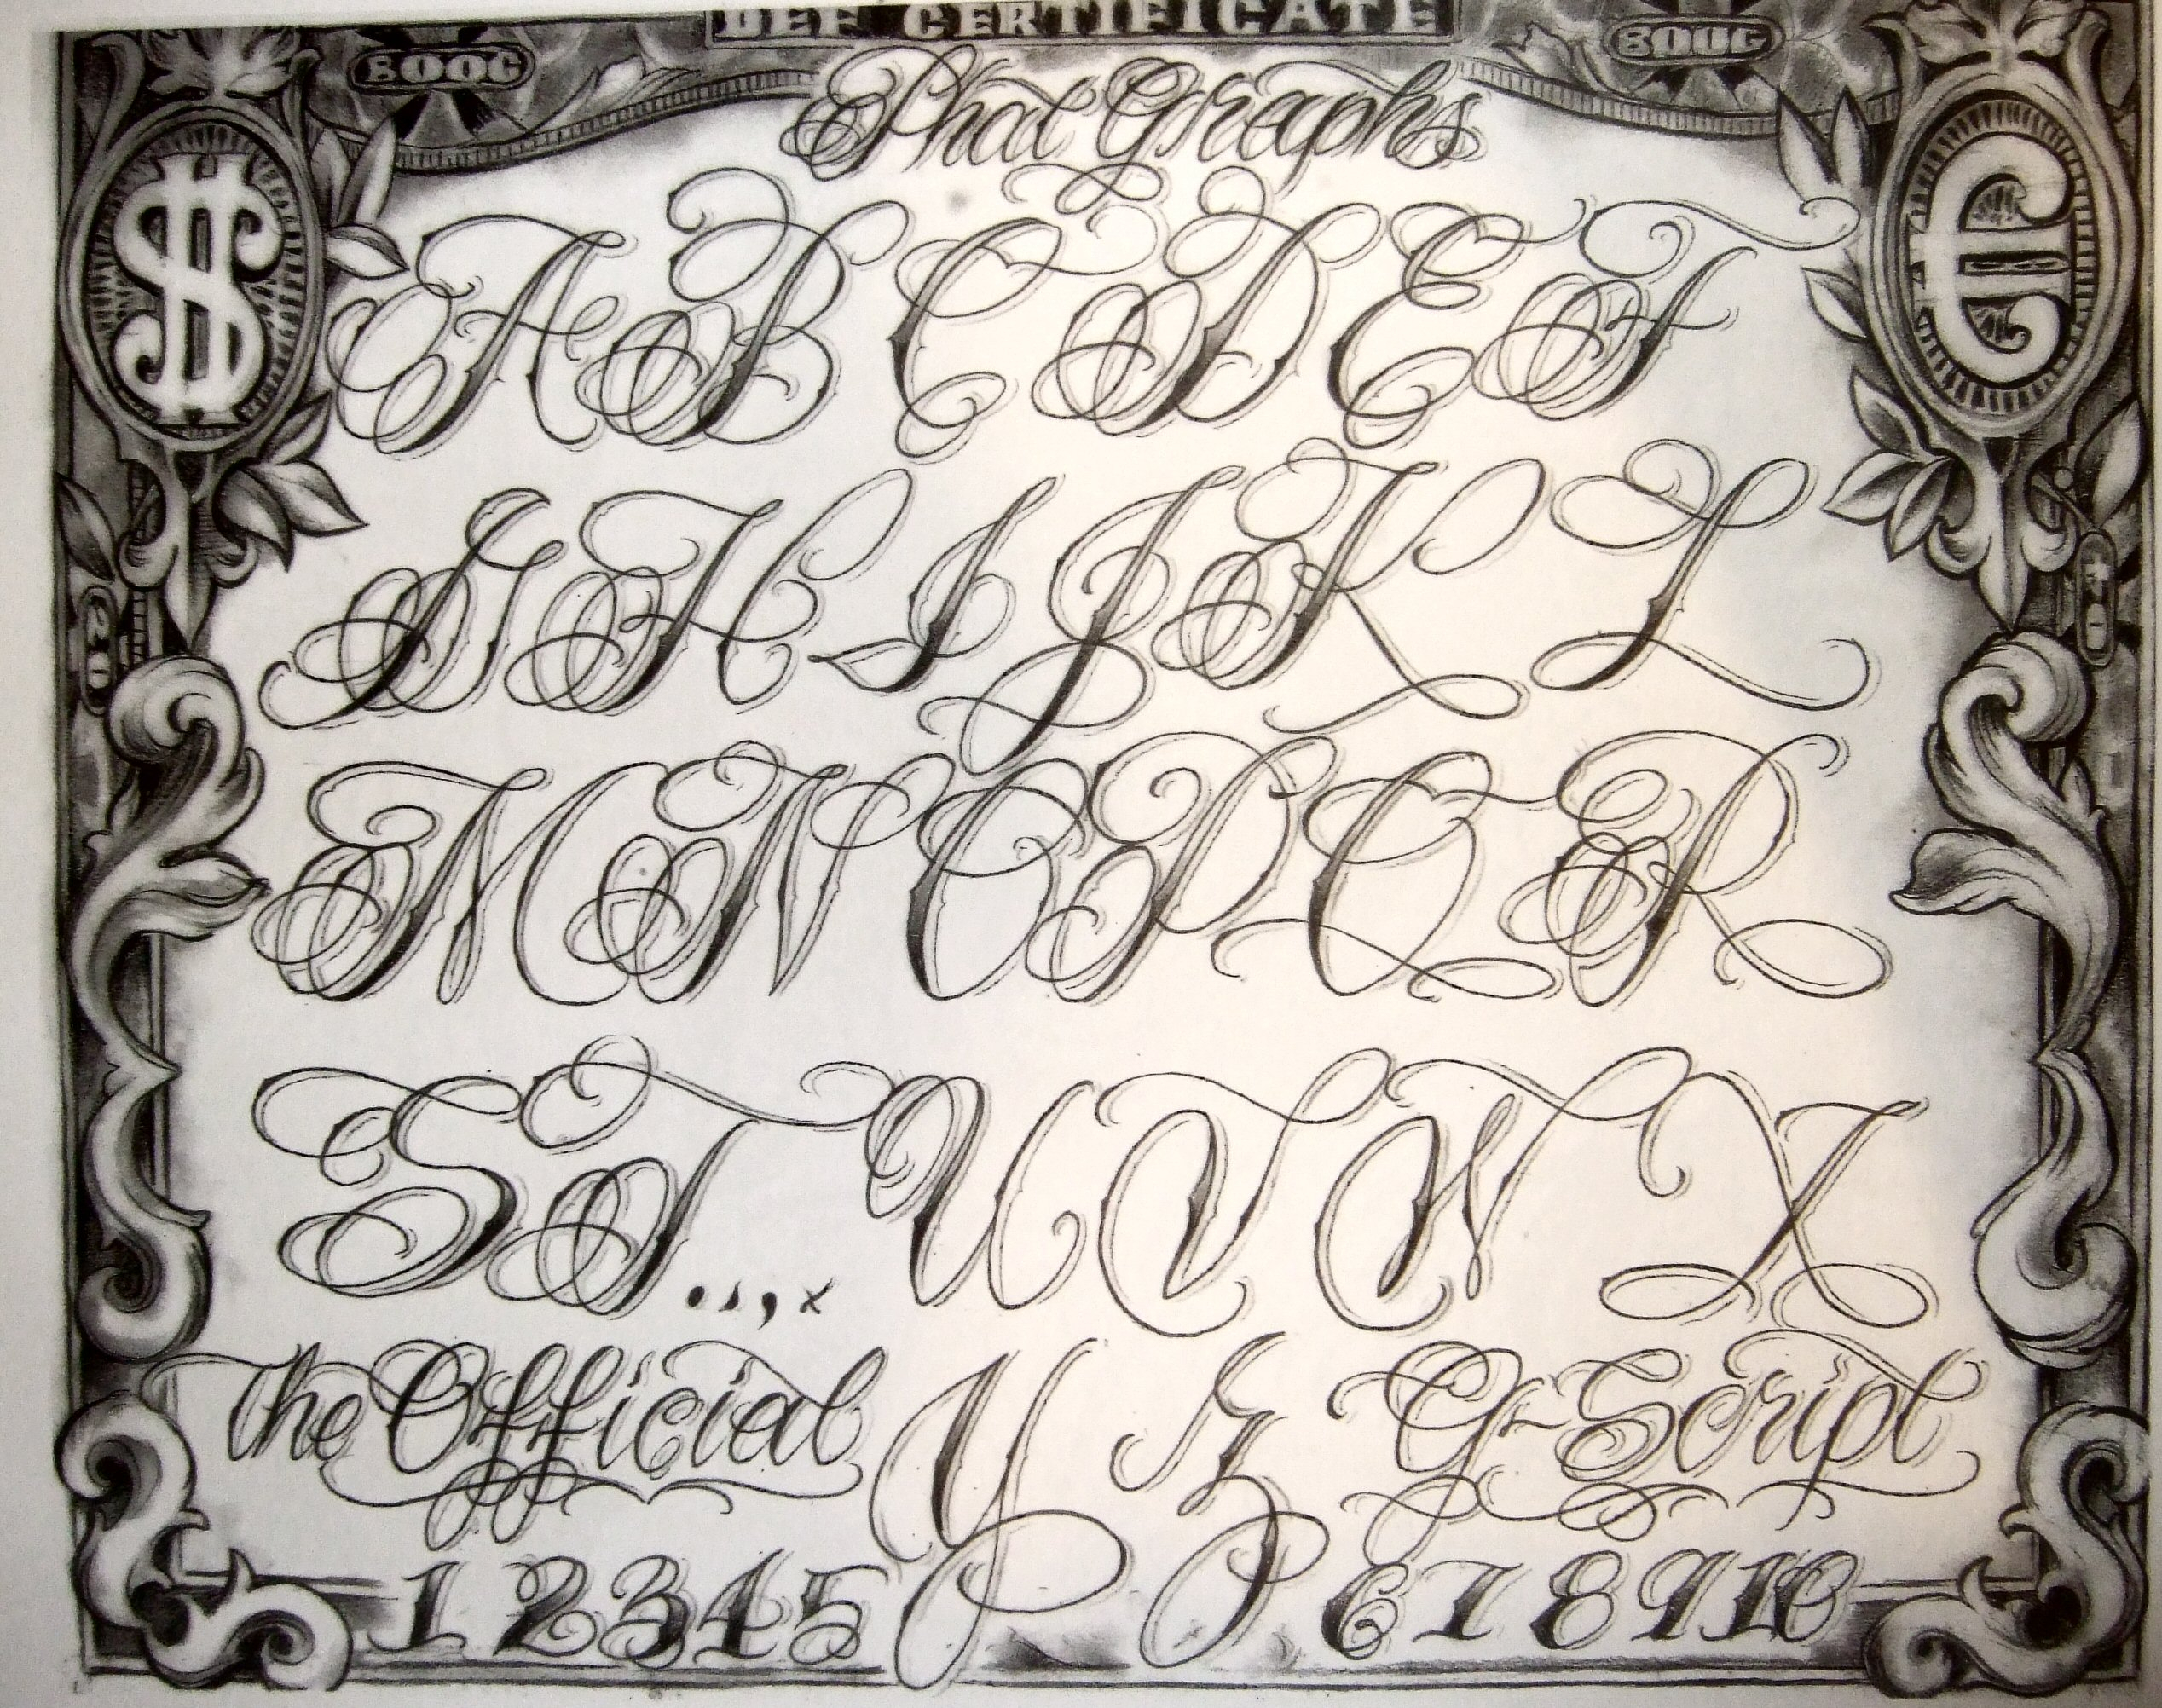 DEF CERTIFICATE
BOOG BOOG
Phat Graphs
A B C D E F
G H I J K L
M N O P Q R
S T . , U V W X
the Official Y Z G-Script
1 2 3 4 5 6 7 8 9 10